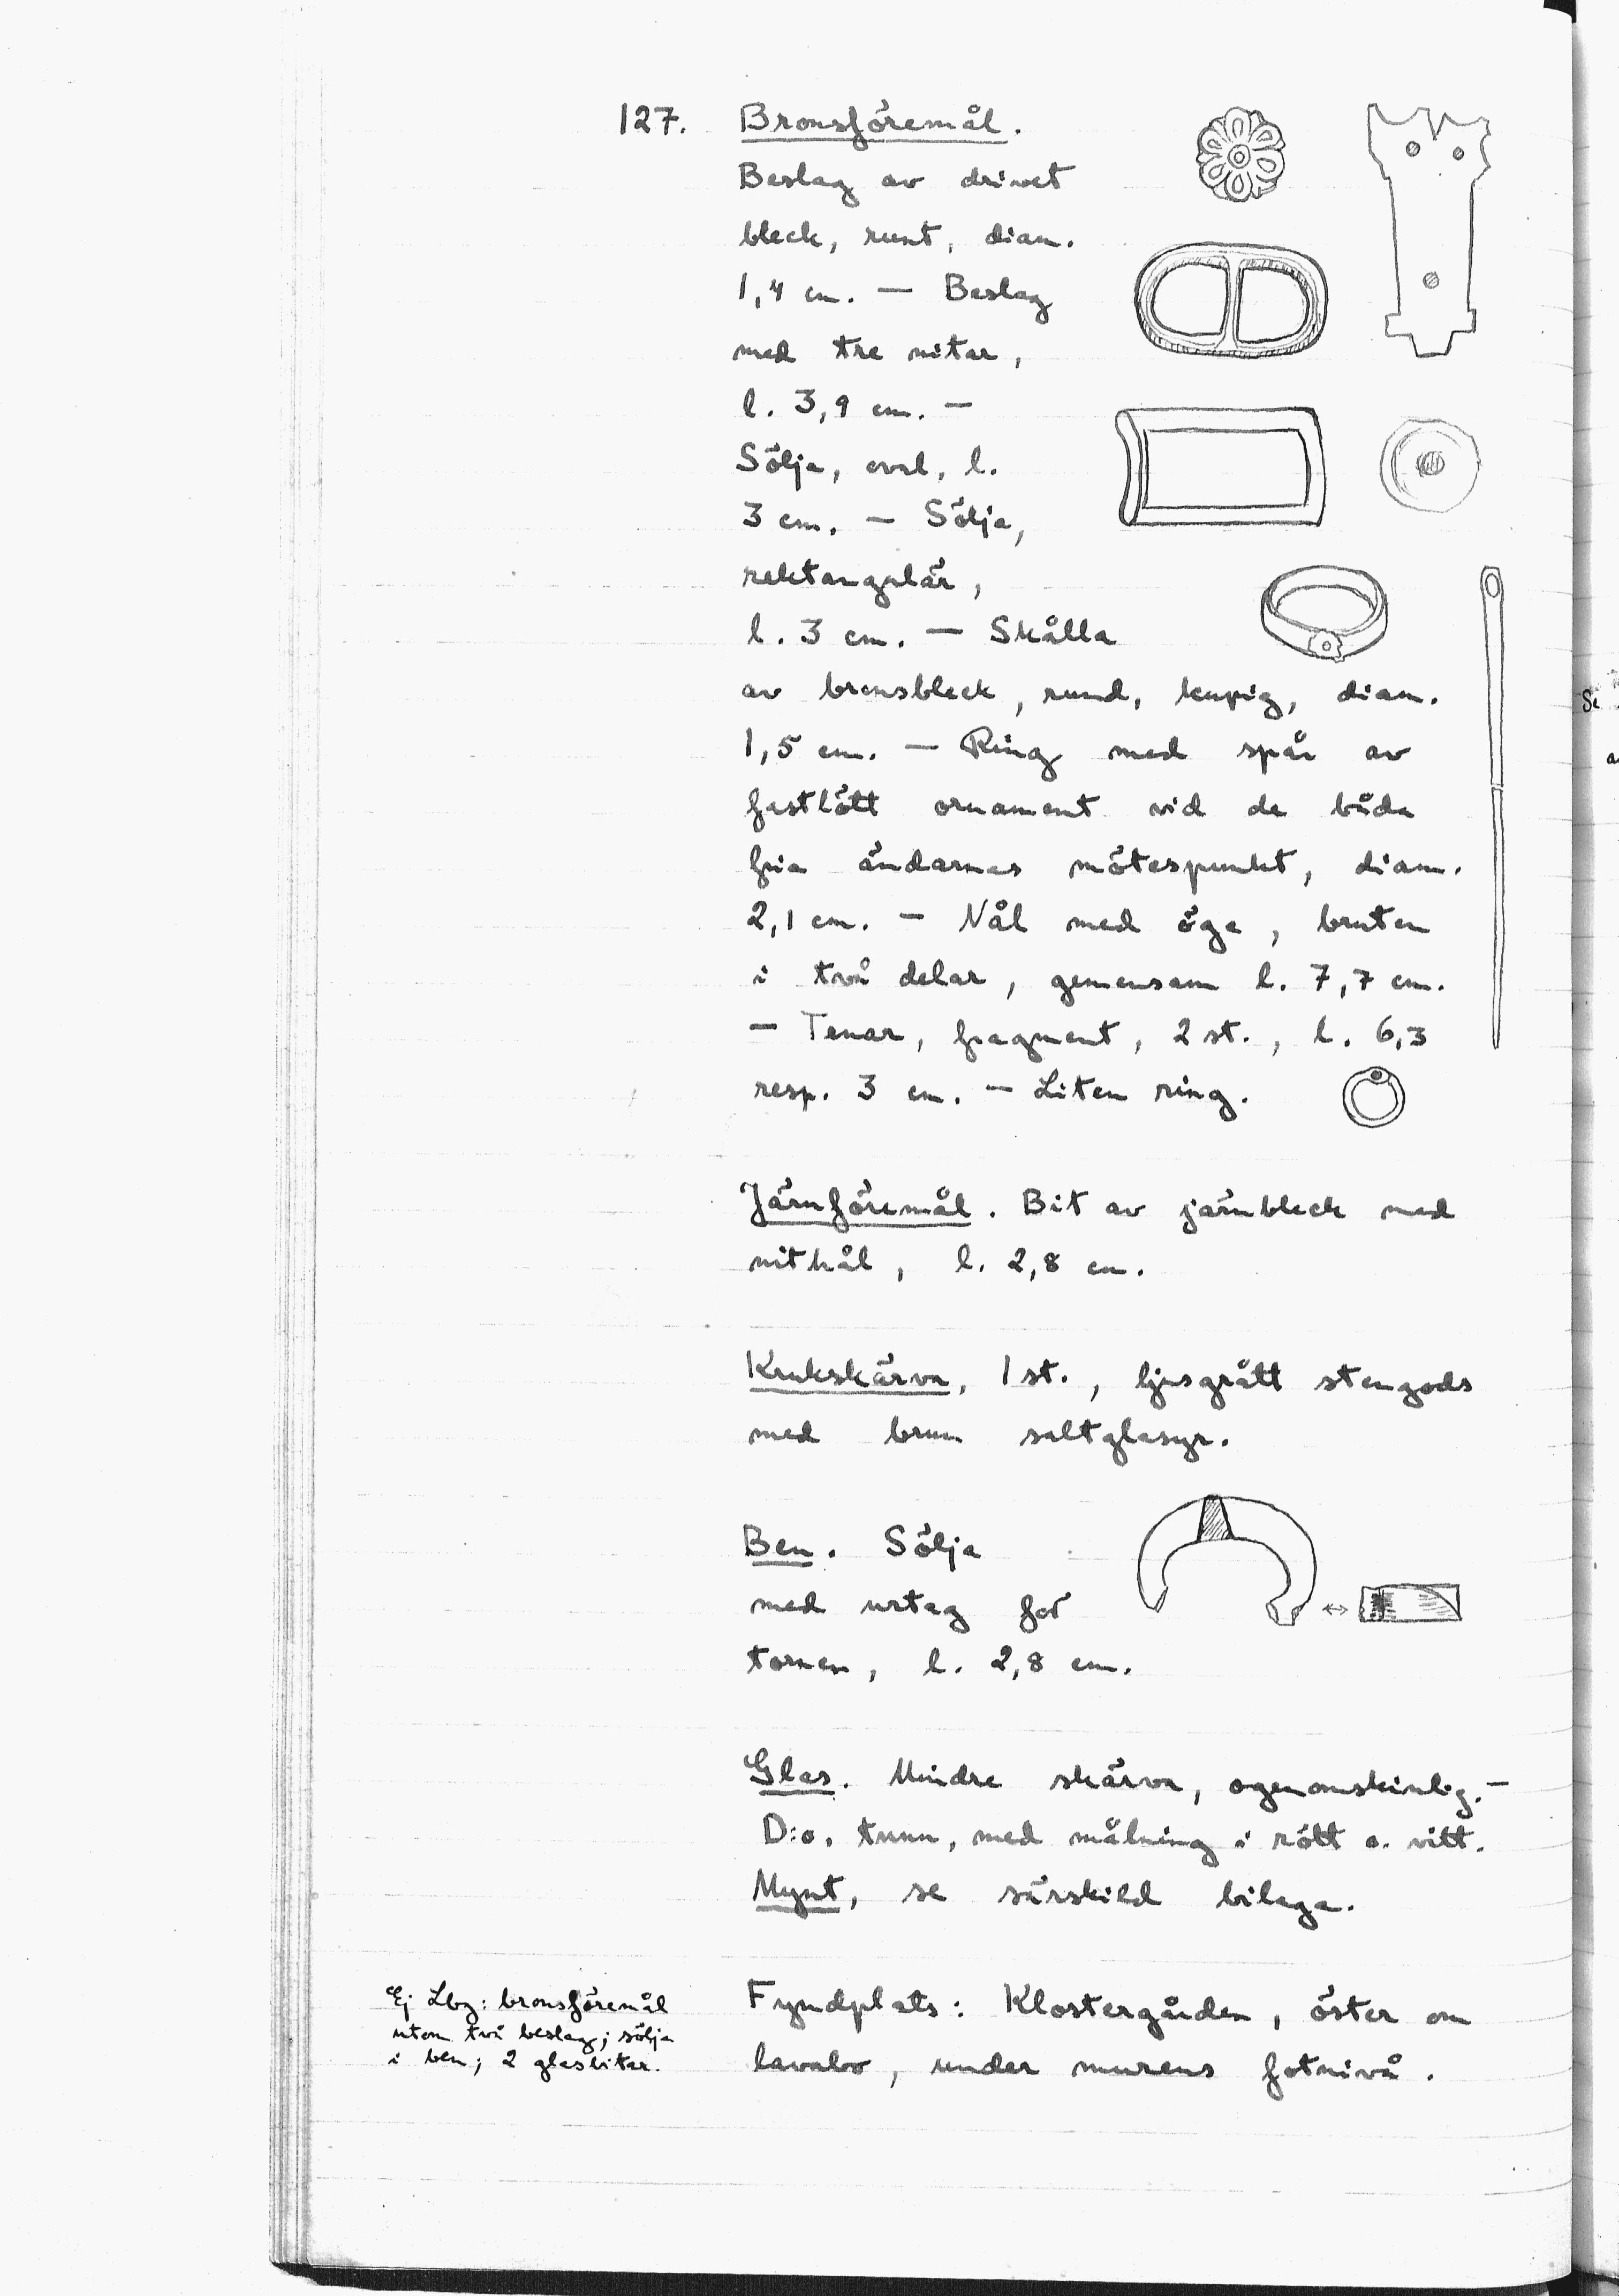 127. Bronsföremål.
Beslag av drivet
bleck, runt, diam.
1,4 cm. — Beslag
med tre nitar,
l. 3,9 cm. —
Sölja, oval, l.
3 cm. — Sölja,
rektangulär,
l. 3 cm. — Skålla
av bronsbleck, rund, kupig, diam.
1,5 cm. — Ring med spår av
fastlött ornament vid de båda
fria ändarnas mötespunkt, diam.
2,1 cm. — Nål med öga, bruten
i två delar, gemensam l. 7,7 cm.
— Tenar, fragment, 2 st., l. 6,3
resp. 3 cm. — Liten ring.
Järnföremål. Bit av järnbleck med
nithål, l. 2,8 cm.
Krukskärva, 1 st., ljusgrått stengods
med brun saltglasyr.
Ben. Sölja
med urtag för
tornen, l. 2,8 cm.
Glas. Mindre skärva, ogenomskinlig. —
D:o, tunn, med målning i rött o. vitt.
Mynt, se särskild bilaga.
Fyndplats: Klostergården, öster om
lavabo, under murens fotnivå.
Ej Lbg: bronsföremål
utom två beslag; sölja
i ben; 2 glasbitar.